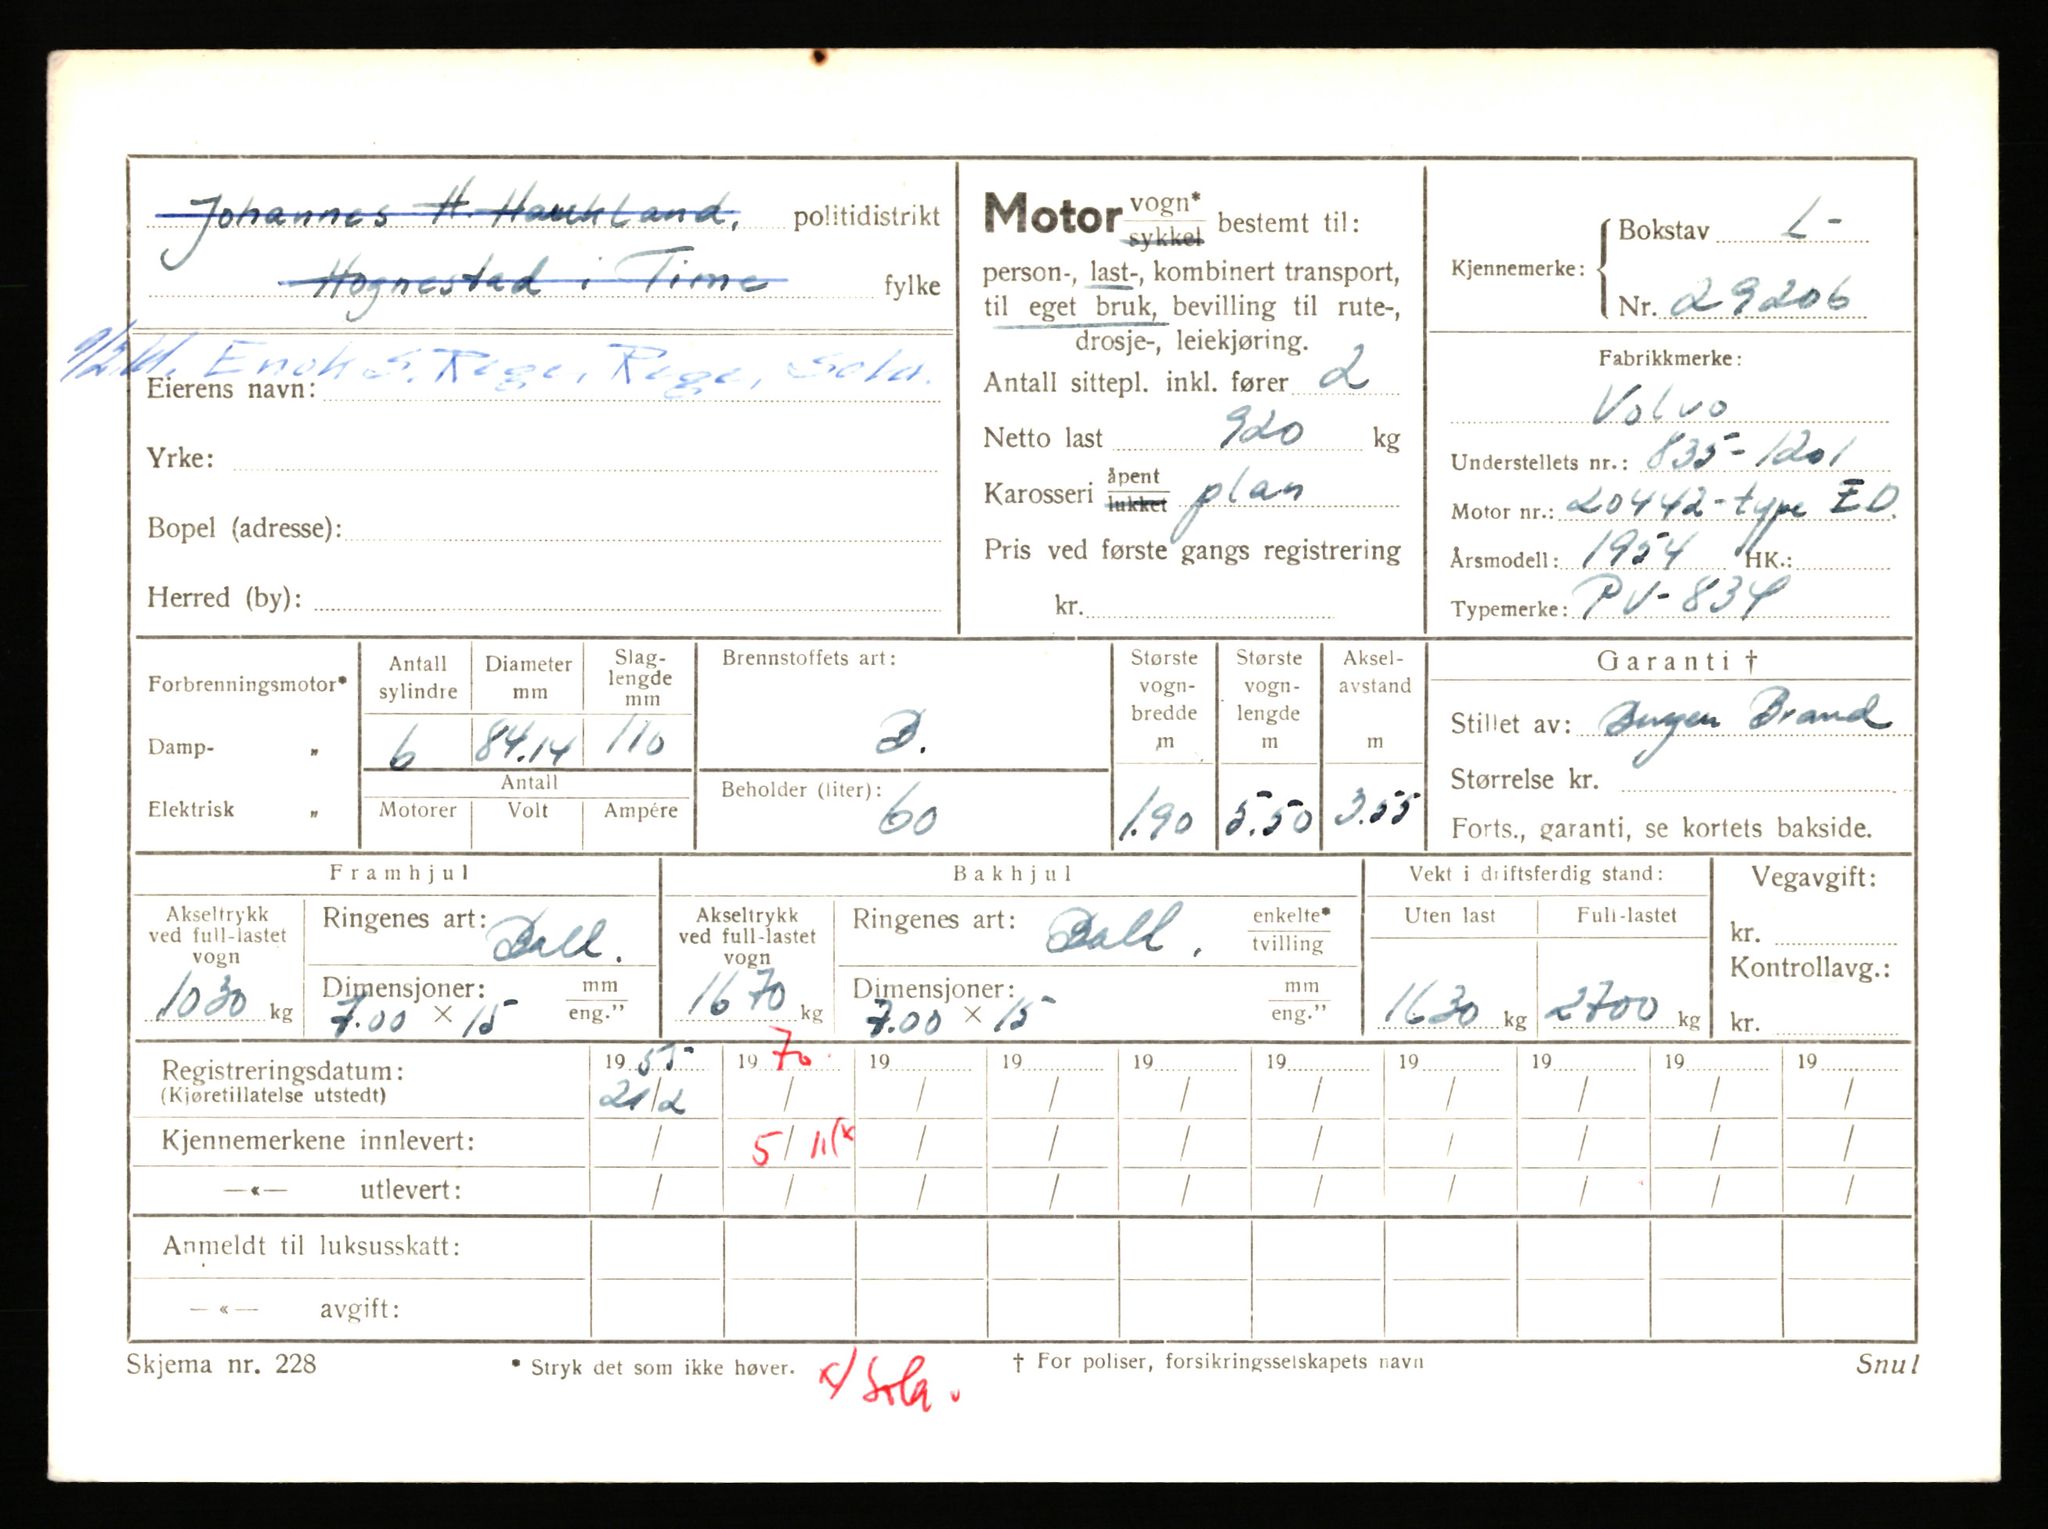 Johannes H. Haukland. politidistrikt
Hognestad i Time fylke
Enok S. Rege, Rege, Sola.
Eierens navn:
Yrke:
Bopel (adresse):
Herred (by):
Motor vogn* sykkel bestemt til:
person-, last-, kombinert transport,
til eget bruk, bevilling til rute-,
drosje-, leiekjøring.
Antall sittepl. inkl. fører 2
Netto last 920 kg
Karosseri åpent lukket plan
Pris ved første gangs registrering
kr.
Kjennemerke: Bokstav L-
Nr. 29206
Fabrikkmerke:
Volvo
Understellets nr.: 835-1201
Motor nr.: 20442-type ED.
Årsmodell: 1954 HK.:
Typemerke: PV-834
Forbrenningsmotor*
Damp- „
Elektrisk „
Antall sylindre
6
Diameter mm
84.14
Slag-lengde mm
110
Antall
Motorer Volt Ampére
Brennstoffets art:
B.
Beholder (liter):
60
Største vogn-bredde m
1.90
Største vogn-lengde m
5.50
Aksel-avstand m
3.55
Garanti †
Stillet av: Brand
Størrelse kr.
Forts., garanti, se kortets bakside.
Framhjul
Akseltrykk ved full-lastet vogn
1030 kg
Ringenes art: Ball.
Dimensjoner: mm eng."
7.00 × 15
Bakhjul
Akseltrykk ved full-lastet vogn
1670 kg
Ringenes art: Ball. enkelte* tvilling
Dimensjoner: mm eng."
7.00 × 15
Vekt i driftsferdig stand:
Uten last Full-lastet
1630 kg 2700 kg
Vegavgift:
kr.
Kontrollavg.:
kr.
Registreringsdatum: 1955 1970 19 19 19 19 19 19 19 19
(Kjøretillatelse utstedt) 21/2 / / / / / / / / /
Kjennemerkene innlevert: / 5/11(x / / / / / / / /
—«— utlevert: / / / / / / / / / /
Anmeldt til luksusskatt:
—«— avgift:
Skjema nr. 228
* Stryk det som ikke høver.
x/ Sola.
† For poliser, forsikringsselskapets navn
Snul